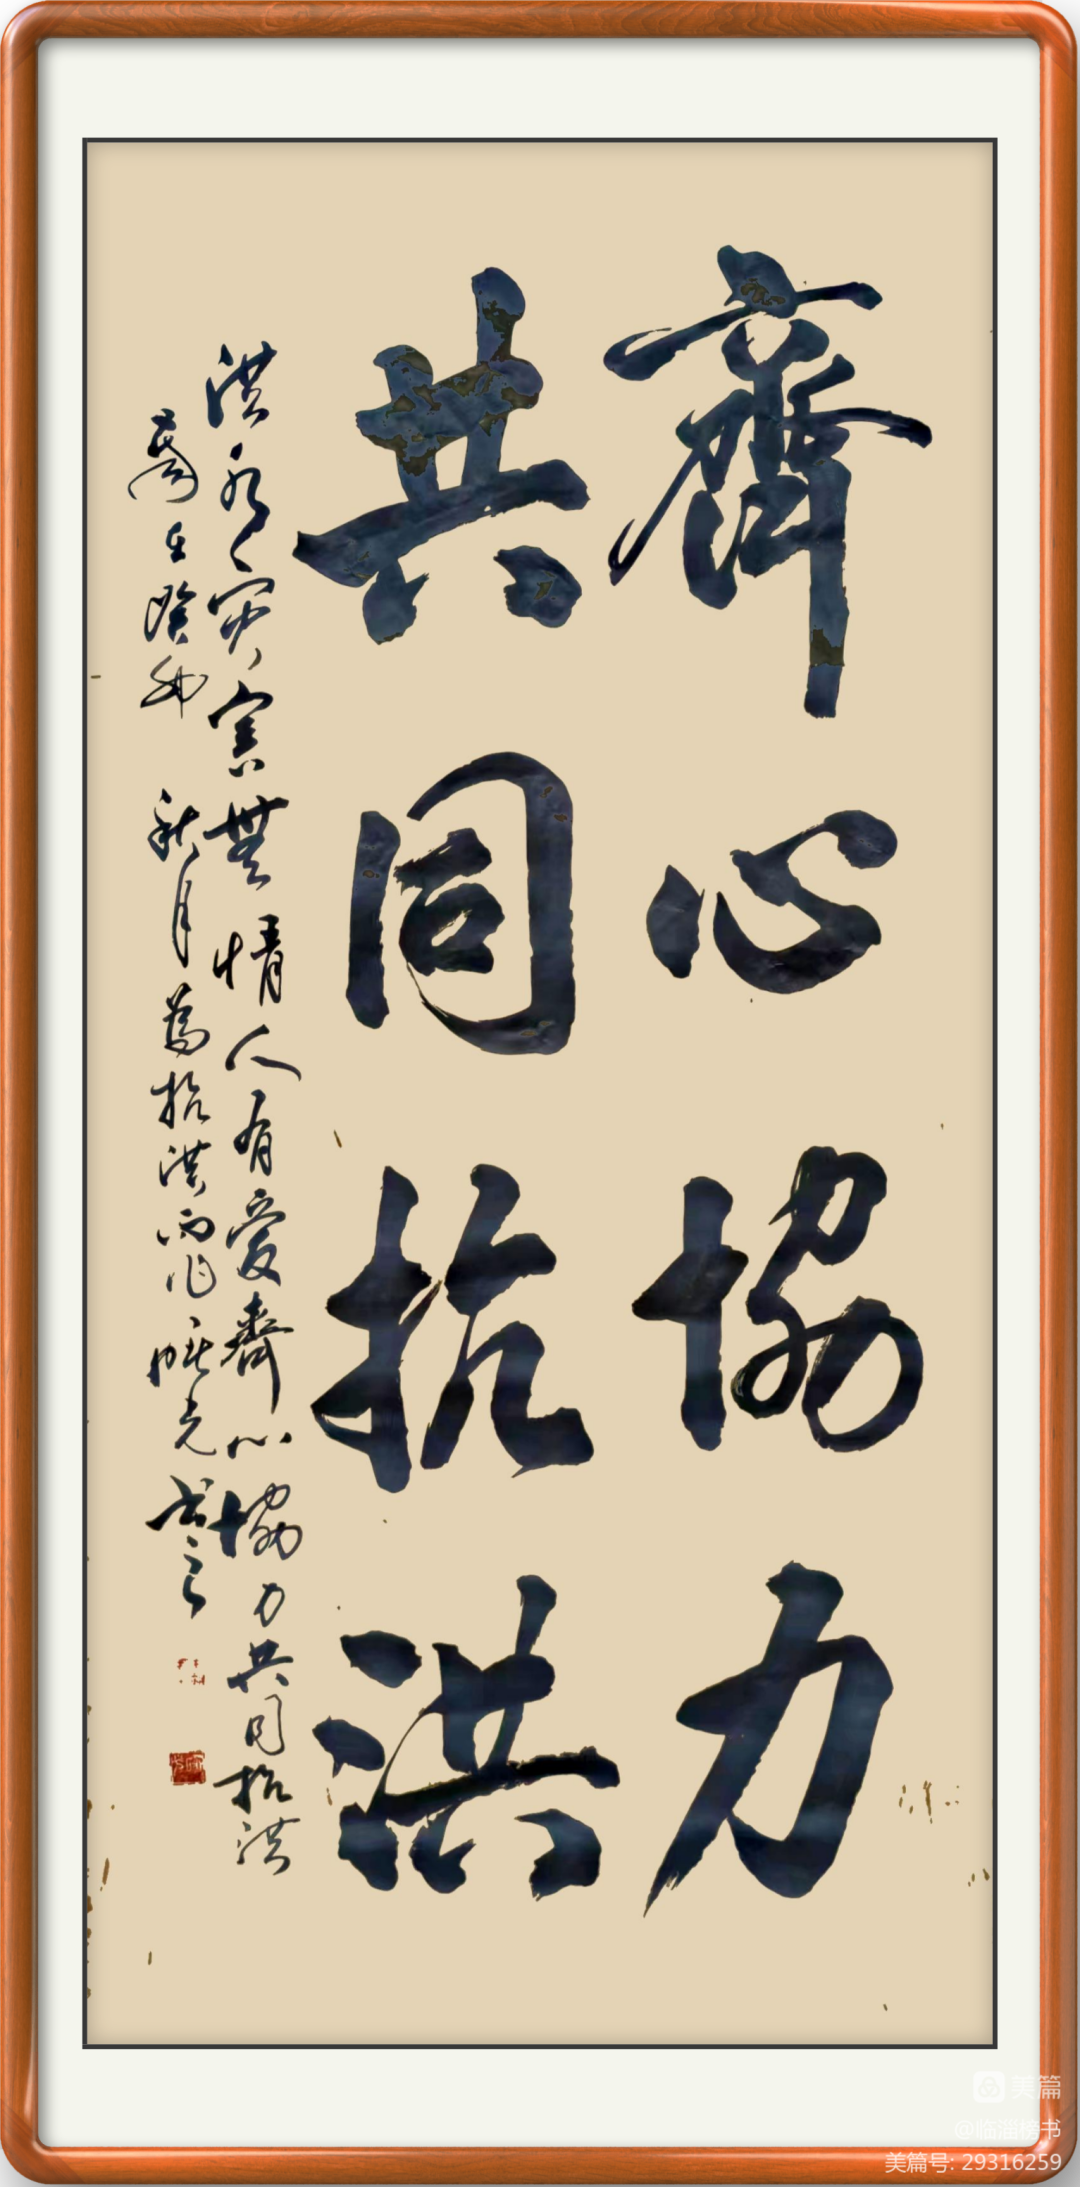 齊心協力
共同抗洪
洪水灾害無情人有爱齊心協力共同抗洪
歲在癸卯秋月為抗洪而作
光书
美篇
@临淄榜书
美篇号: 29316259